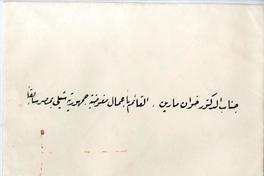 جناب الدكتور خوان مارين . القائم بأعمال مفوضية جمهورية شيلي بمصر سابقاً